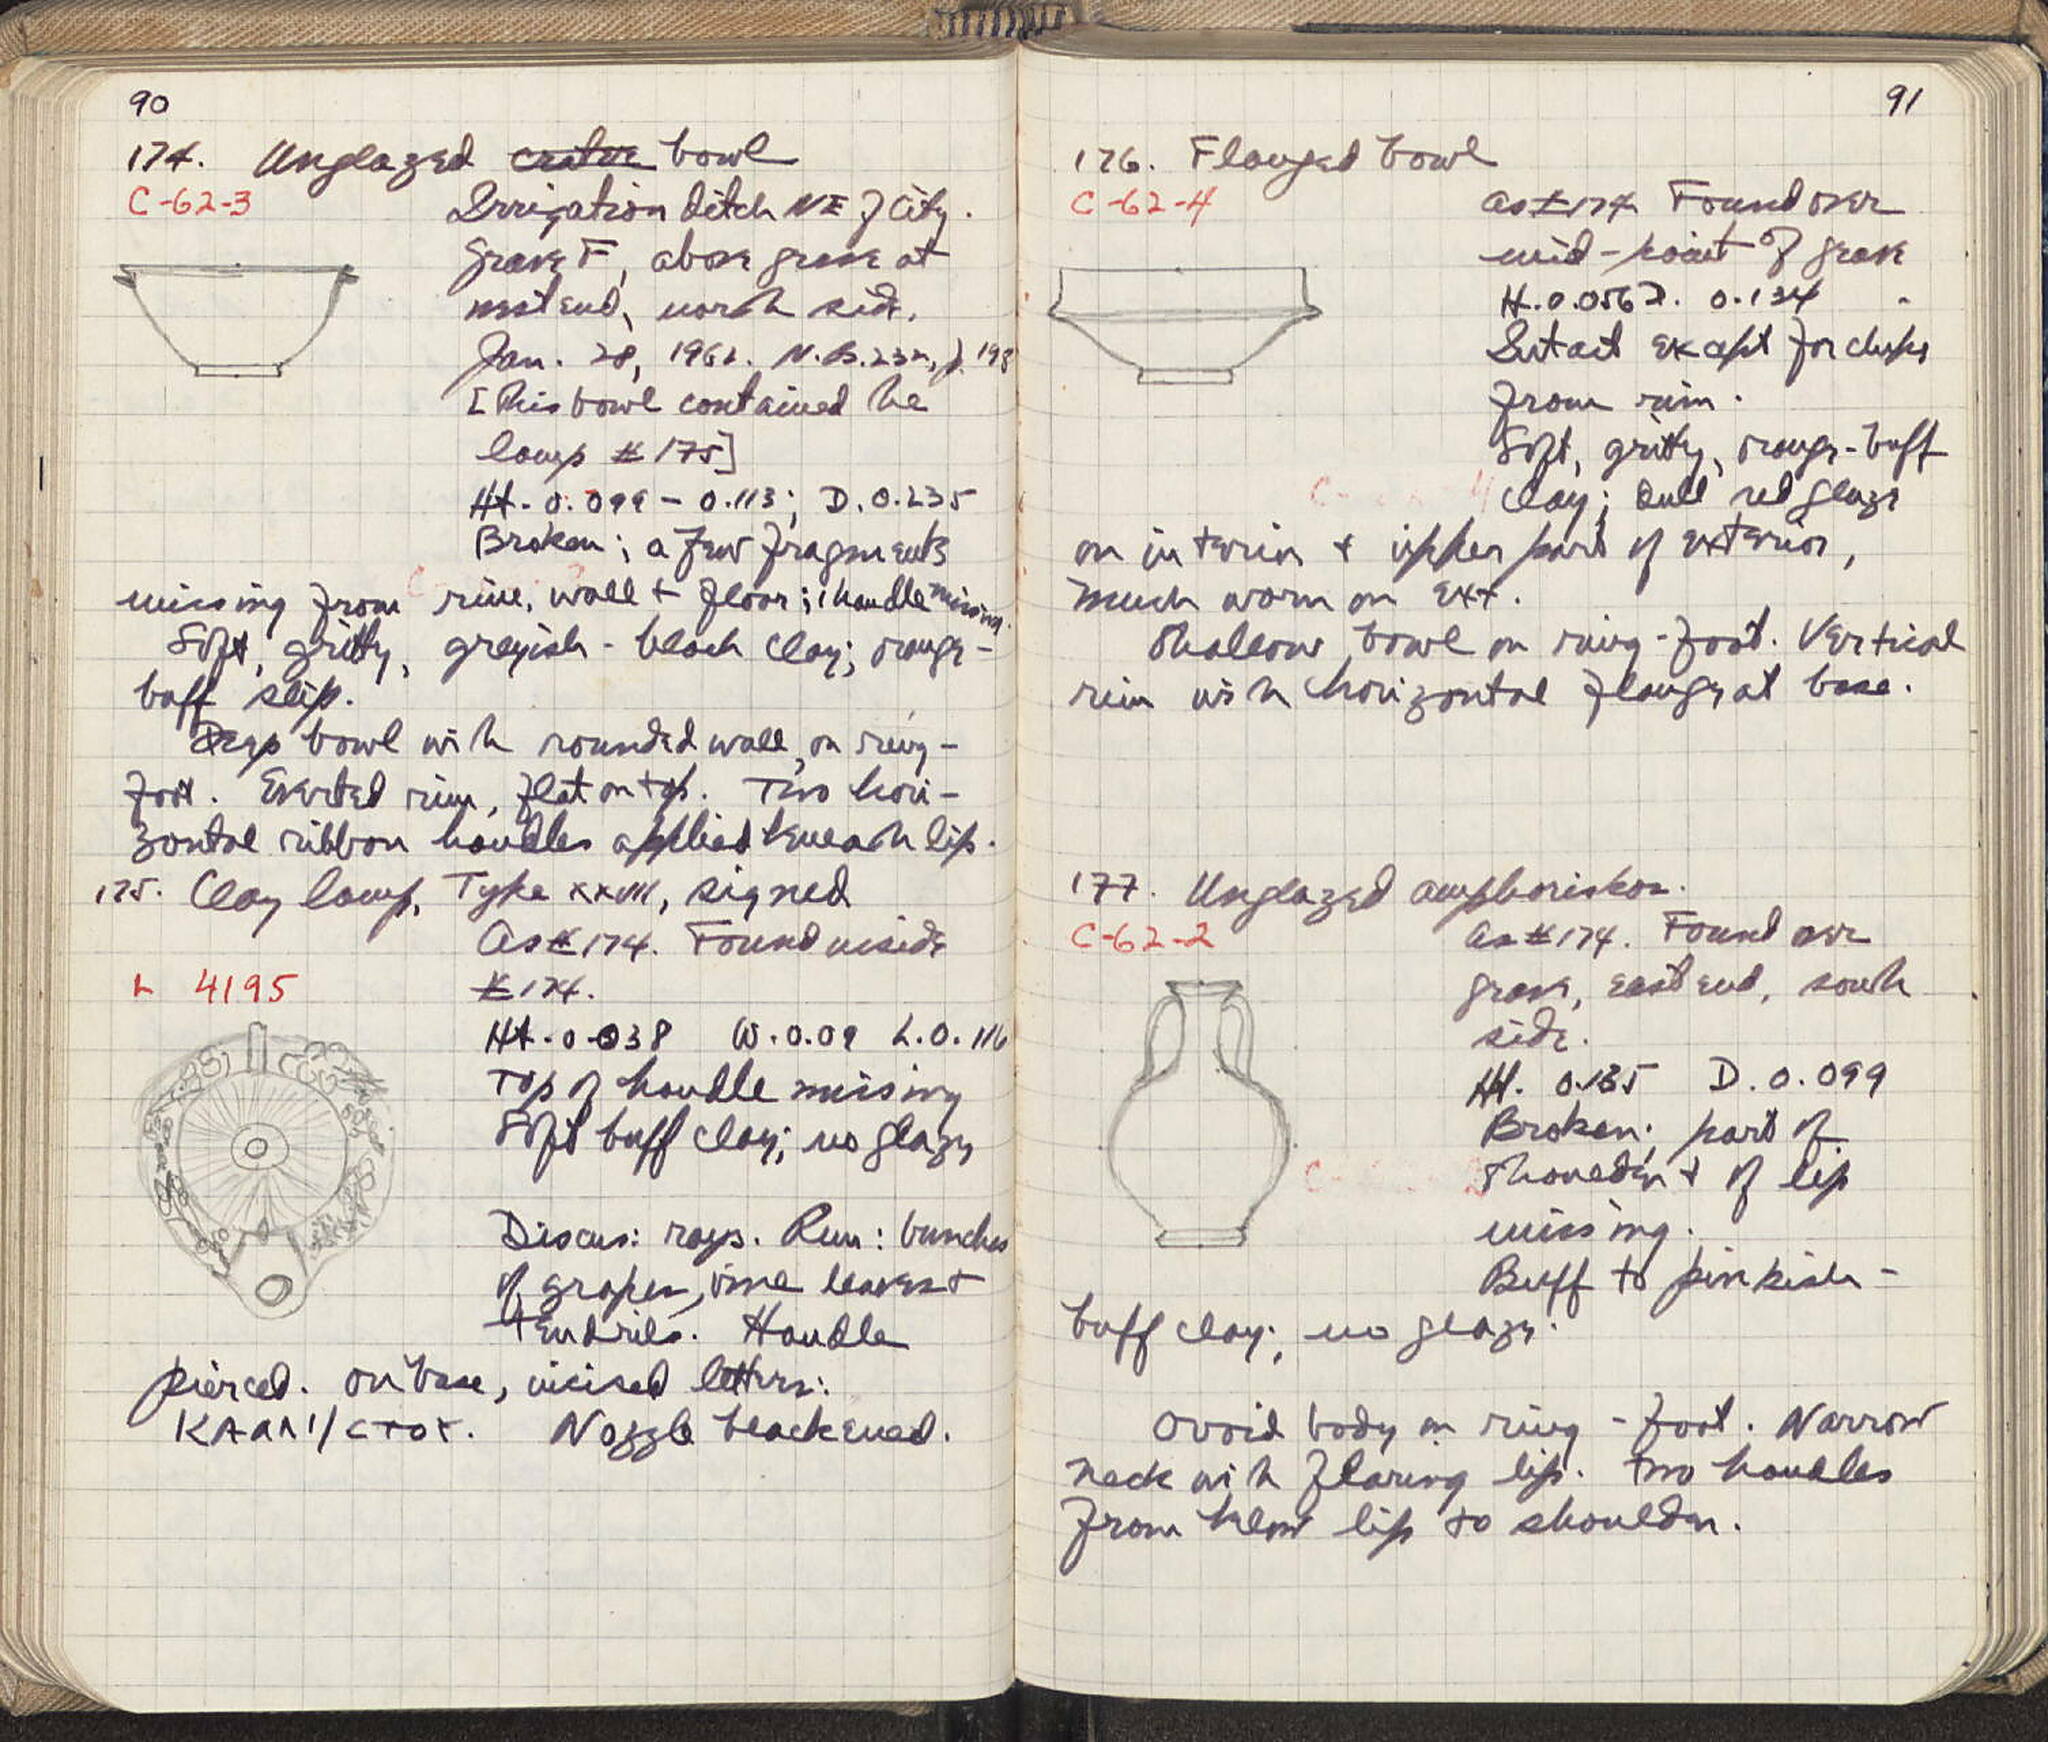 90
174. Unglazed crater bowl
C-62-3
Irrigation ditch NE of City.
Grave F, above grave at
west end, north side.
Jan. 28, 1962. N.B. 232, p. 193
[This bowl contained the
lamp #175]
Ht. 0.099 - 0.113; D. 0.235
Broken; a few fragments
missing from rim, wall + floor; 1 handle missing.
Soft, gritty, greyish-black clay; orange-
buff slip.
Deep bowl with rounded wall, on ring-
foot. Everted rim, flat on top. Two hori-
zontal ribbon handles applied beneath lip.
175. Clay lamp, Type XXVIII, signed
As #174. Found inside
#174.
L 4195
Ht. 0.038 W. 0.09 L. 0.116
Top of handle missing
Soft buff clay; no glaze
Discus: rays. Rim: bunches
of grapes, vine leaves +
tendrils. Handle
pierced. On base, incised letters:
Nozzle blackened.
91
176. Flanged bowl
C-62-4
As #174 Found over
mid-point of grave
H. 0.056 D. 0.134
Intact except for chips
from rim.
Soft, gritty, orange-buff
clay; dull red glaze
on interior + upper part of exterior,
much worn on ext.
Shallow bowl on ring-foot. Vertical
rim with horizontal flange at base.
177. Unglazed amphoriskos.
C-62-2
As #174. Found over
grave, east end, south
side.
Ht. 0.135 D. 0.099
Broken; part of
shoulder + of lip
missing.
Buff to pinkish-
buff clay; no glaze.
Ovoid body on ring-foot. Narrow
neck with flaring lip. Two handles
from below lip to shoulder.